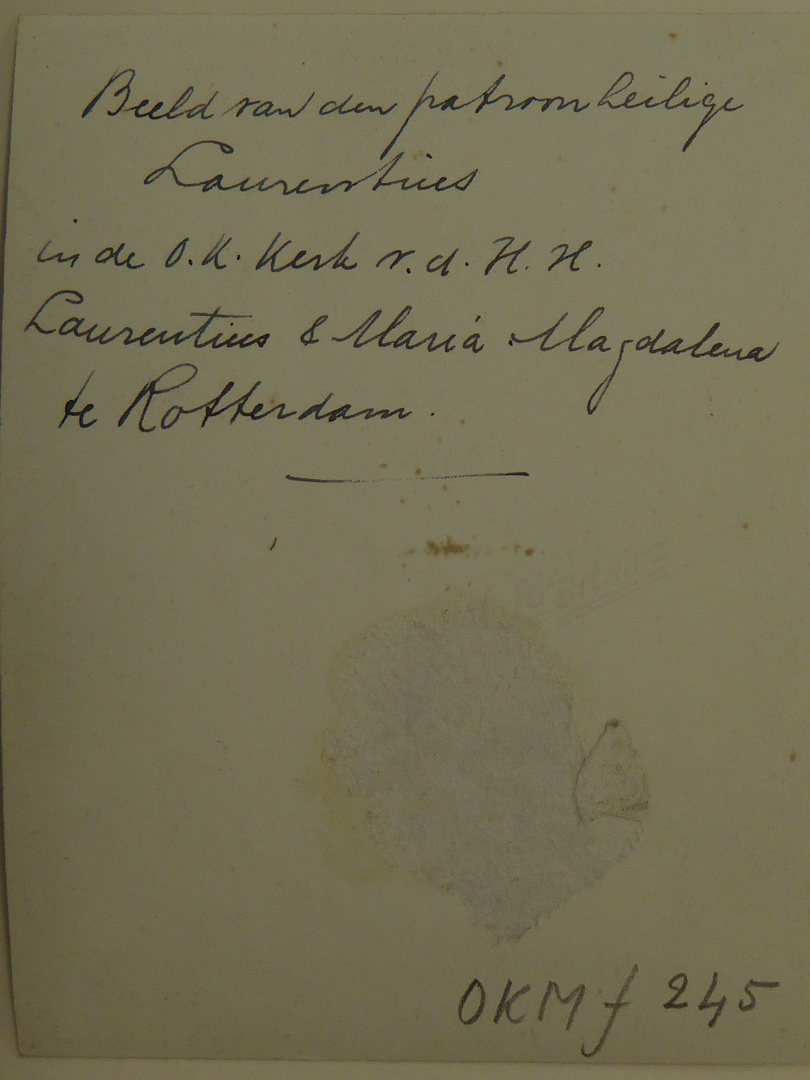 Beeld van den patroonheilige
Laurentius
in de O.K. Kerk v.d. H.H.
Laurentius & Maria Magdalena
te Rotterdam.
OKM f 245